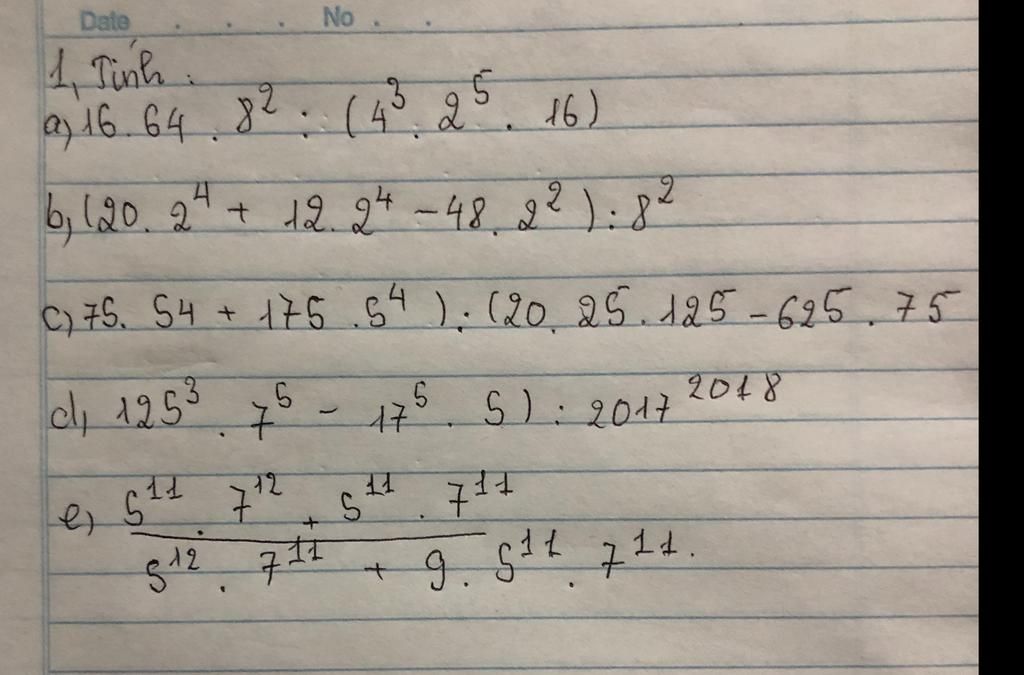 Date . . . . No . . .
1, Tính :
a) 16 . 64 . 8² : (4³ . 2⁵ . 16)
b, (20 . 2⁴ + 12 . 2⁴ - 48 . 2²) : 8²
c) 75 . 54 + 175 . 5⁴ ) : (20 . 25 . 125 - 625 . 75
d, 125³ . 7⁵ - 17⁵ . 5) : 2017²⁰¹⁸
e) 5¹¹ . 7¹² + 5¹¹ . 7¹¹
5¹² . 7¹¹ + 9 . 5¹¹ . 7¹¹.